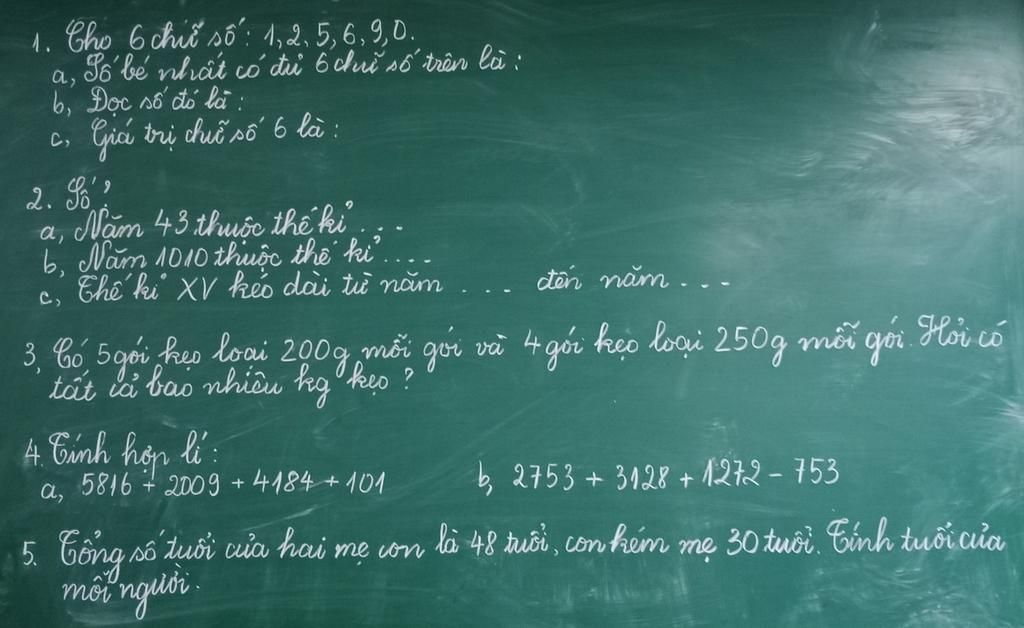 1. Cho 6 chữ số: 1, 2, 5, 6, 9, 0.
a, Số bé nhất có đủ 6 chữ số trên là:
b, Đọc số đó là:
c, Giá trị chữ số 6 là:
2. Số?
a, Năm 43 thuộc thế kỉ ...
b, Năm 1010 thuộc thế kỉ ....
c, Thế kỉ XV kéo dài từ năm .... đến năm ....
3, Có 5 gói kẹo loại 200g mỗi gói và 4 gói kẹo loại 250g mỗi gói. Hỏi có
tất cả bao nhiêu kg kẹo?
4. Tính hợp lí:
a, 5816 + 2009 + 4184 + 101 b, 2753 + 3128 + 1272 - 753
5. Tổng số tuổi của hai mẹ con là 48 tuổi, con kém mẹ 30 tuổi. Tính tuổi của
mỗi người.